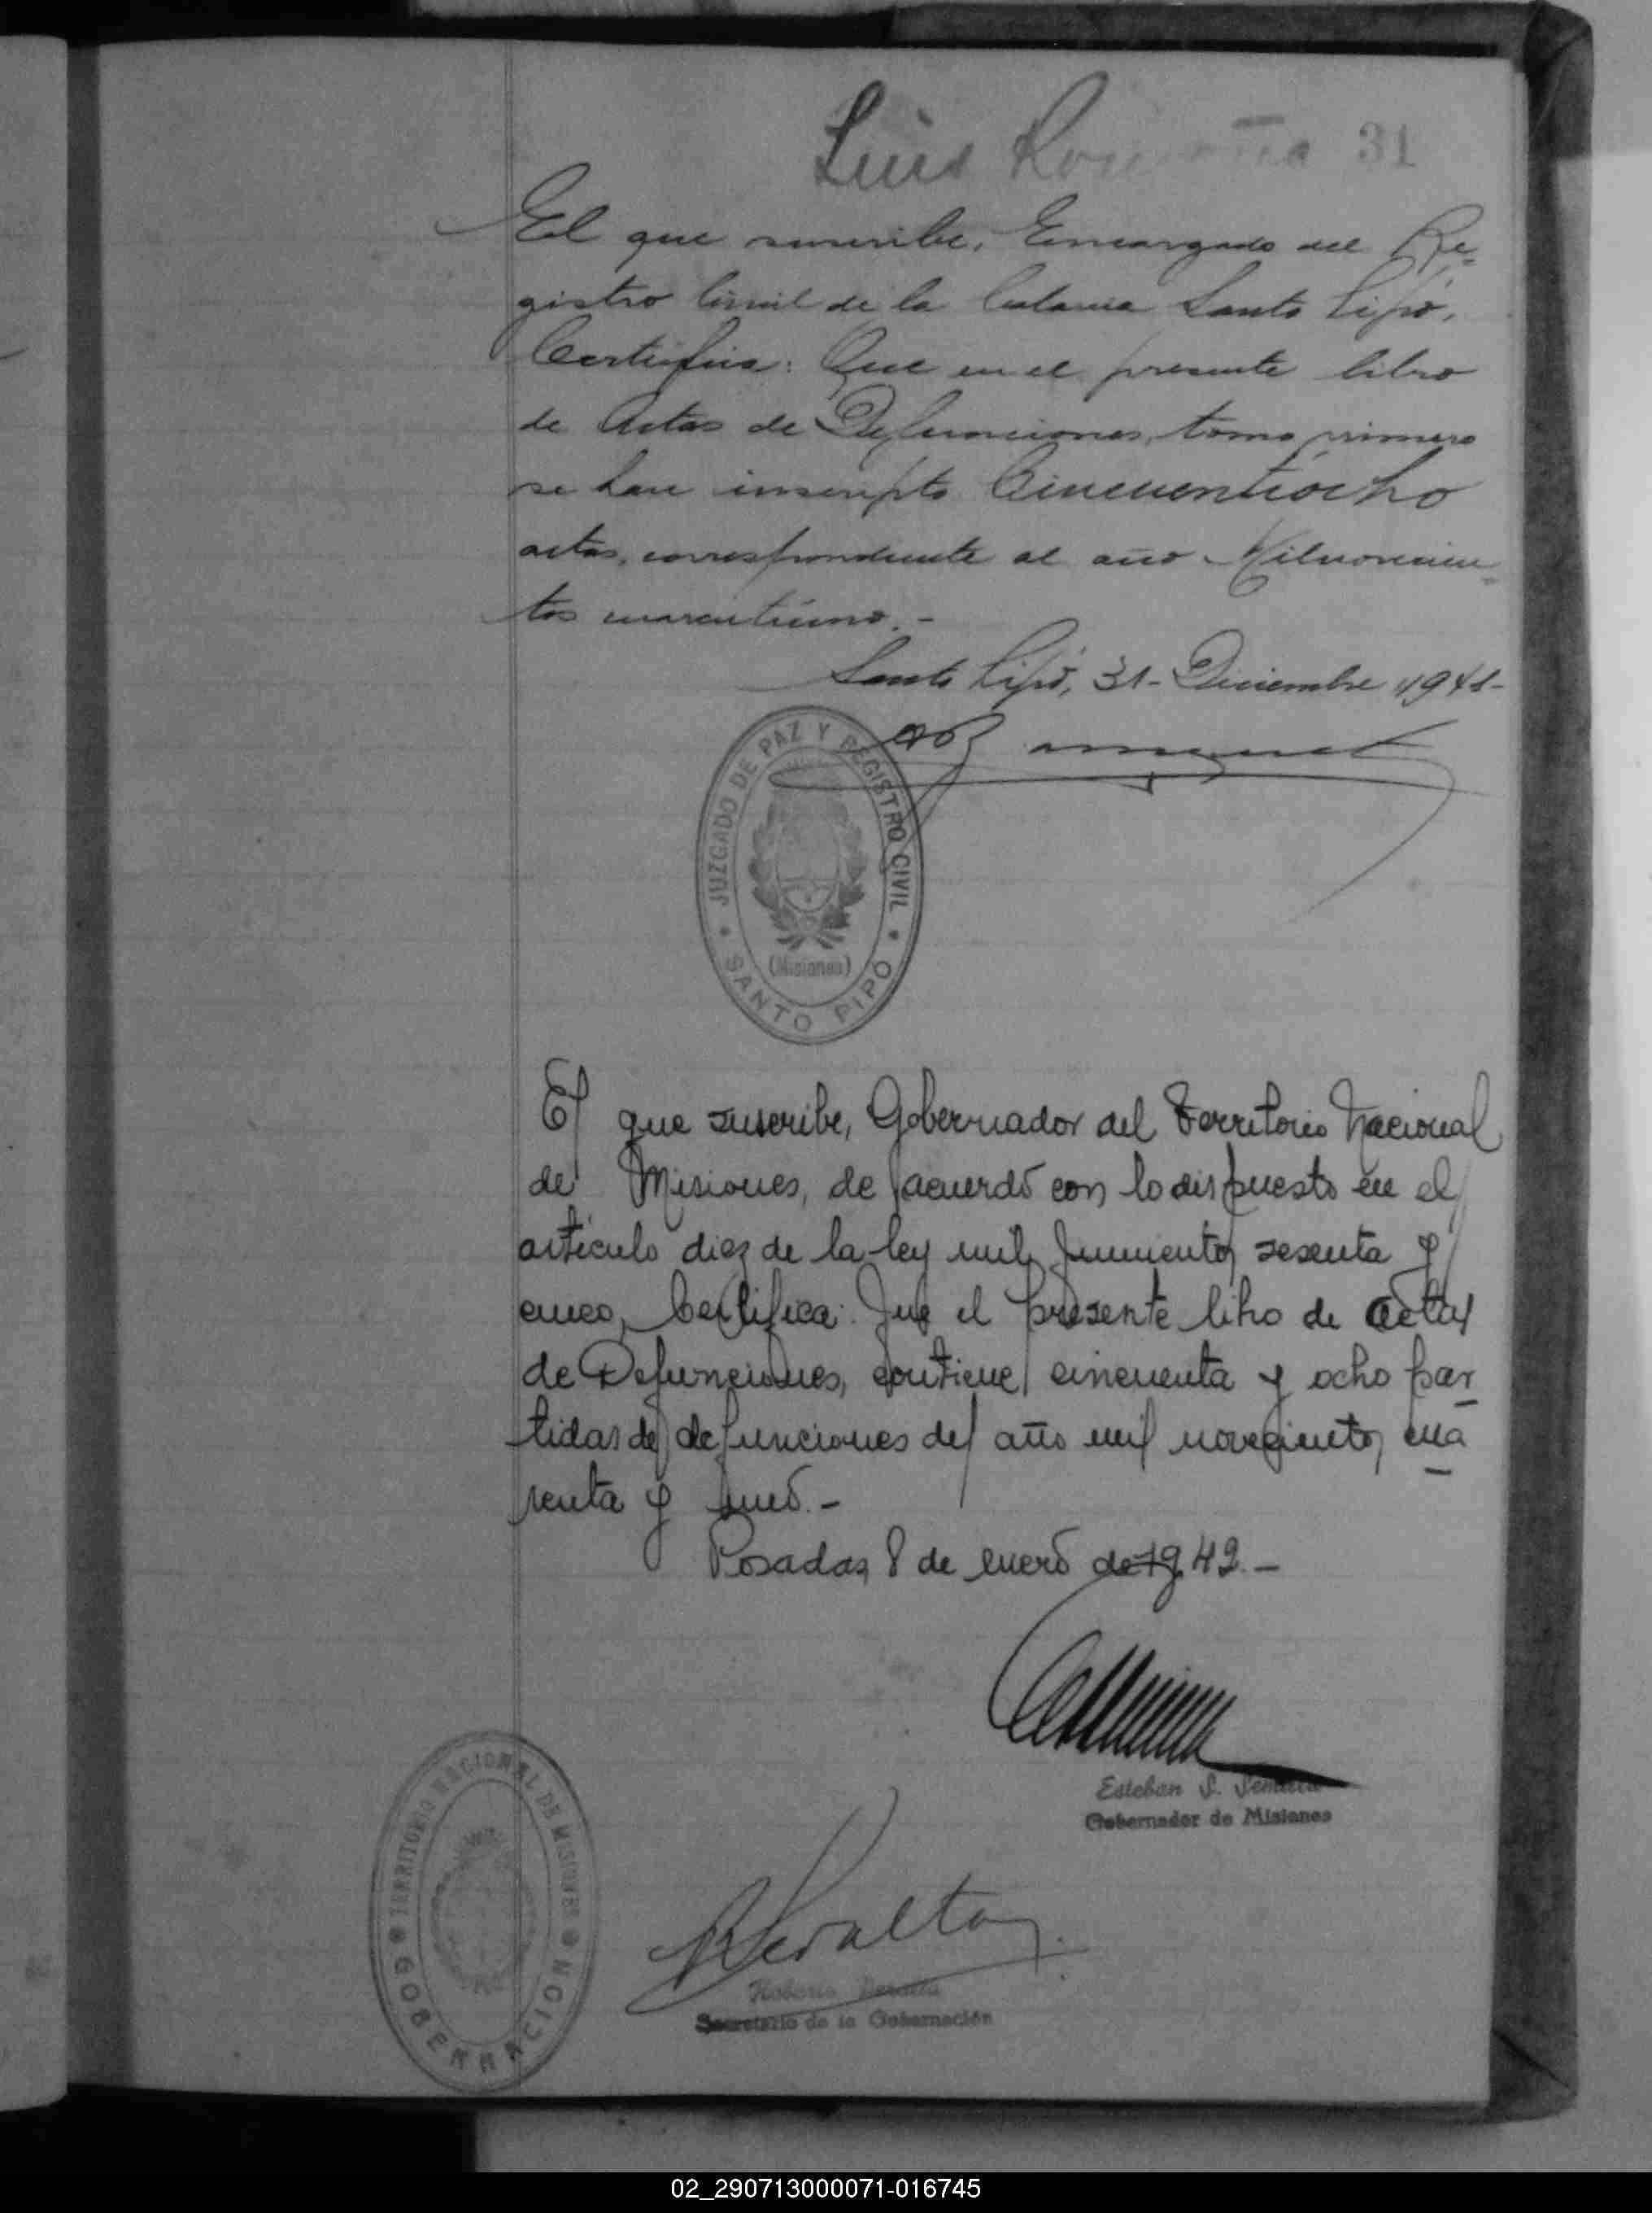 Luis 31
El que suscribe, Encargado del Re-
gistro Civil de la Colonia Santo Pipó,
Certifica: Que en el presente libro
de Actas de Defunciones, tomo primero
se han inscripto Cincuentiocho
actas, correspondiente al año Milnovecien-
tos cuarentiuno.-
Santo Pipó, 31- Diciembre 1941-
JUZGADO DE PAZ Y REGISTRO CIVIL
(Misiones)
SANTO PIPÓ
El que suscribe, Gobernador del Territorio Nacional
de Misiones, de acuerdo con lo dispuesto en el
artículo diez de la ley mil quinientos sesenta y
cinco, Certifica: Que el presente libro de Actas
de Defunciones, contiene cincuenta y ocho par-
tidas de defunciones del año mil novecientos cua-
renta y uno.-
Posadas, 8 de enero de 1942.-
Esteban S.
Gobernador de Misiones
TERRITORIO NACIONAL DE MISIONES
GOBERNACION
Peralta
Peralta
Secretario de la Gobernación
02_290713000071-016745